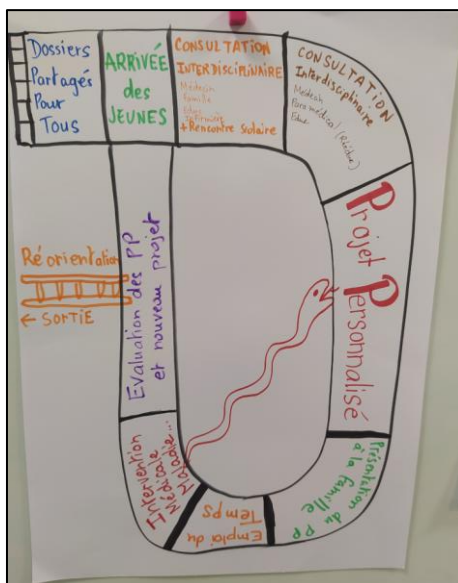 Dossiers
Partagés
Pour
Tous
ARRIVÉE
des
JEUNES
CONSULTATION
INTERDISCIPLINAIRE
Médecin
Famille
Educ
Infirmière
+ Rencontre scolaire
CONSULTATION
Interdisciplinaire
Médecin
Paramédical (Rééduc)
Educ
Projet
Personnalisé
Présentation du PP
à la famille
Emploi du
Temps
Intervention
Médicale
Maladie...
Evaluation des PP
et nouveau projet
Réorientation
← SORTIE